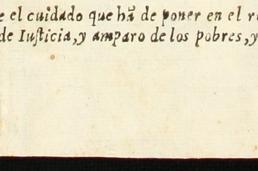 e el cuidado que hã de poner en el r
de Iusticia, y amparo de los pobres, y